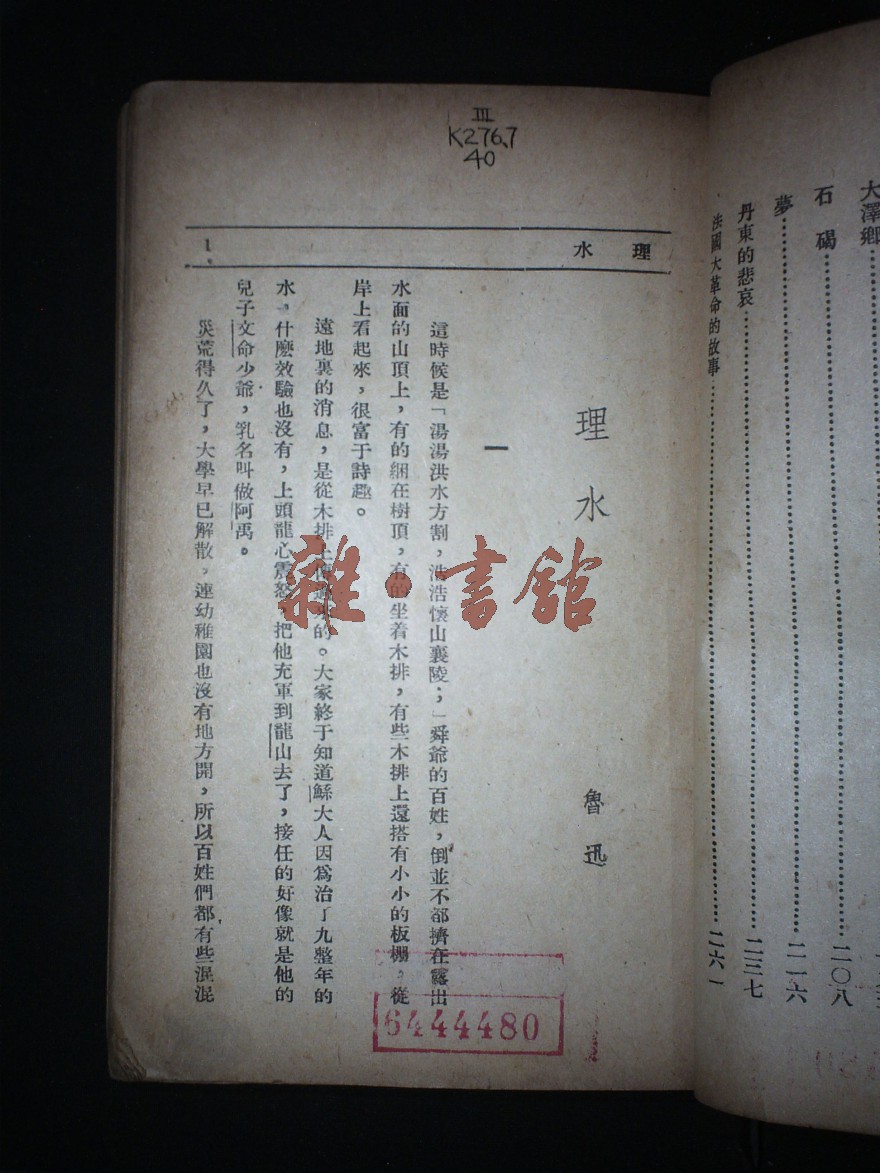 大澤鄉
石碣……二〇八
夢……二一六
丹東的悲哀……二三七
法國大革命的故事……二六一
III
K276.7
40
理水
1
理水
魯迅
一
這時候是「湯湯洪水方割，浩浩懷山襄陵；」舜爺的百姓，倒並不都擠在露出
水面的山頂上，有的綑在樹頂，有的坐着木排，有些木排上還搭有小小的板棚，從
岸上看起來，很富于詩趣。
遠地裏的消息，是從木排上傳過來的。大家終于知道鯀大人因爲治了九整年的
水，什麽效驗也沒有，上頭龍心震怒，把他充軍到龍山去了，接任的好像就是他的
兒子文命少爺，乳名叫做阿禹。
災荒得久了，大學早已解散，連幼稚園也沒有地方開，所以百姓們都有些混混
雜·書館
6444480